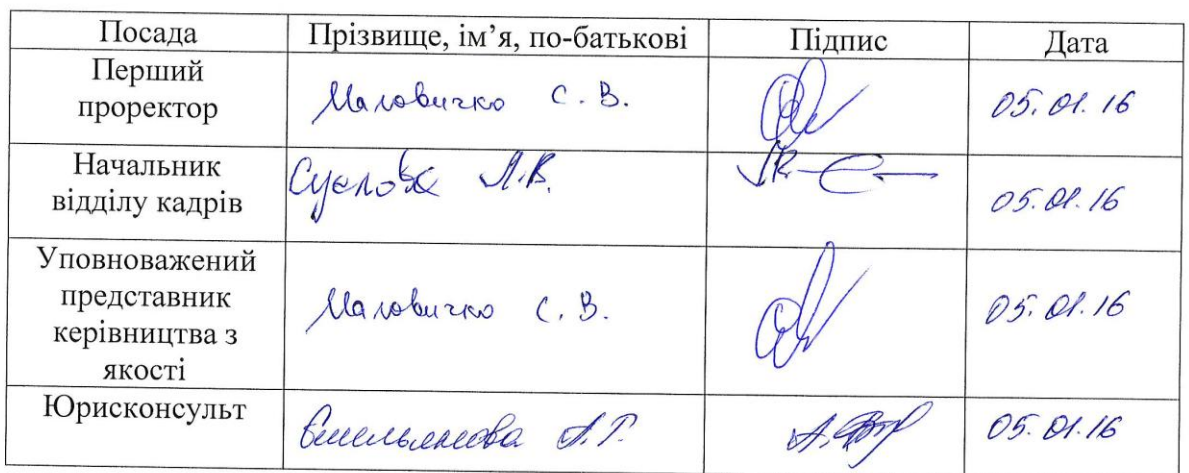 Посада Прізвище, ім’я, по-батькові Підпис Дата
Перший
проректор Маловичко С. В. 05.01.16
Начальник
відділу кадрів Суслова А.В. 05.01.16
Уповноважений
представник
керівництва з
якості Маловичко С. В. 05.01.16
Юрисконсульт Ємельянова А.Г. 05.01.16